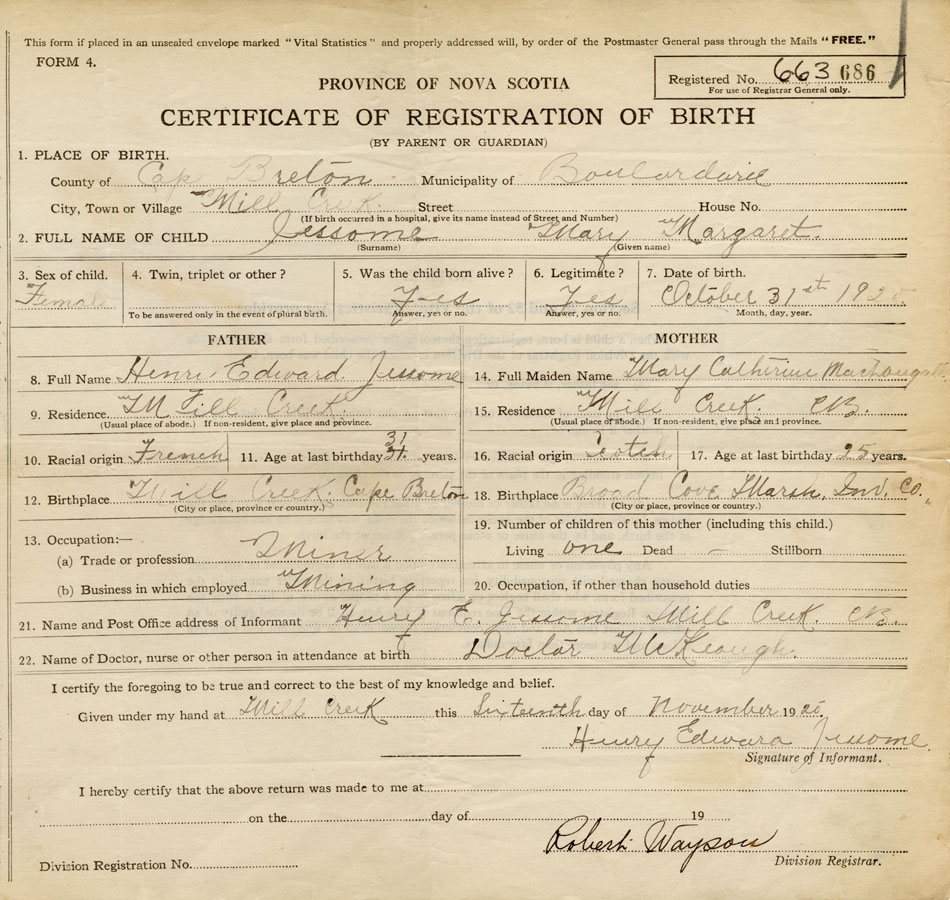 This form if placed in an unsealed envelope marked "Vital Statistics" and properly addressed will, by order of the Postmaster General pass through the Mails "FREE."
FORM 4.
Registered No. 663 686
For use of Registrar General only.
PROVINCE OF NOVA SCOTIA
CERTIFICATE OF REGISTRATION OF BIRTH
(BY PARENT OR GUARDIAN)
1. PLACE OF BIRTH.
County of Cap Breton Municipality of Boulardarie
City, Town or Village Mill Creek Street House No.
(If birth occurred in a hospital, give its name instead of Street and Number)
2. FULL NAME OF CHILD Jessome Mary Margaret.
(Surname) (Given name)
3. Sex of child. 4. Twin, triplet or other? 5. Was the child born alive? 6. Legitimate? 7. Date of birth.
Female Yes Yes October 31st 192
To be answered only in the event of plural birth. Answer, yes or no. Answer, yes or no. Month, day, year.
FATHER MOTHER
8. Full Name Henri Edward Jessome 14. Full Maiden Name Mary Catherine
9. Residence. Mill Creek. 15. Residence Mill Creek. CB.
(Usual place of abode.) If non-resident, give place and province. (Usual place of abode.) If non-resident, give place and province.
10. Racial origin French 11. Age at last birthday 31 years. 16. Racial origin Scotch 17. Age at last birthday 25 years.
12. Birthplace Mill Creek. Cape Breton 18. Birthplace Broad Cove Marsh, Inv. Co.
(City or place, province or country.) (City or place, province or country.)
13. Occupation:— 19. Number of children of this mother (including this child.)
(a) Trade or profession Miner Living one Dead — Stillborn
(b) Business in which employed Mining 20. Occupation, if other than household duties
21. Name and Post Office address of Informant Henry E. Jessome Mill Creek. CB.
22. Name of Doctor, nurse or other person in attendance at birth Doctor McKeough.
I certify the foregoing to be true and correct to the best of my knowledge and belief.
Given under my hand at Mill Creek this Sixteenth day of November 1920.
Henry Edward Jessome.
Signature of Informant.
I hereby certify that the above return was made to me at
on the day of 19
Robert Wayson
Division Registration No. Division Registrar.